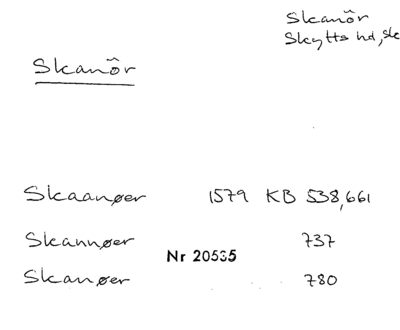 Skanör
Skytts hd, Sk
Skanör
Skaanøer 1579 KB 538,661
Skannøer 737
Nr 20535
Skanøer 780